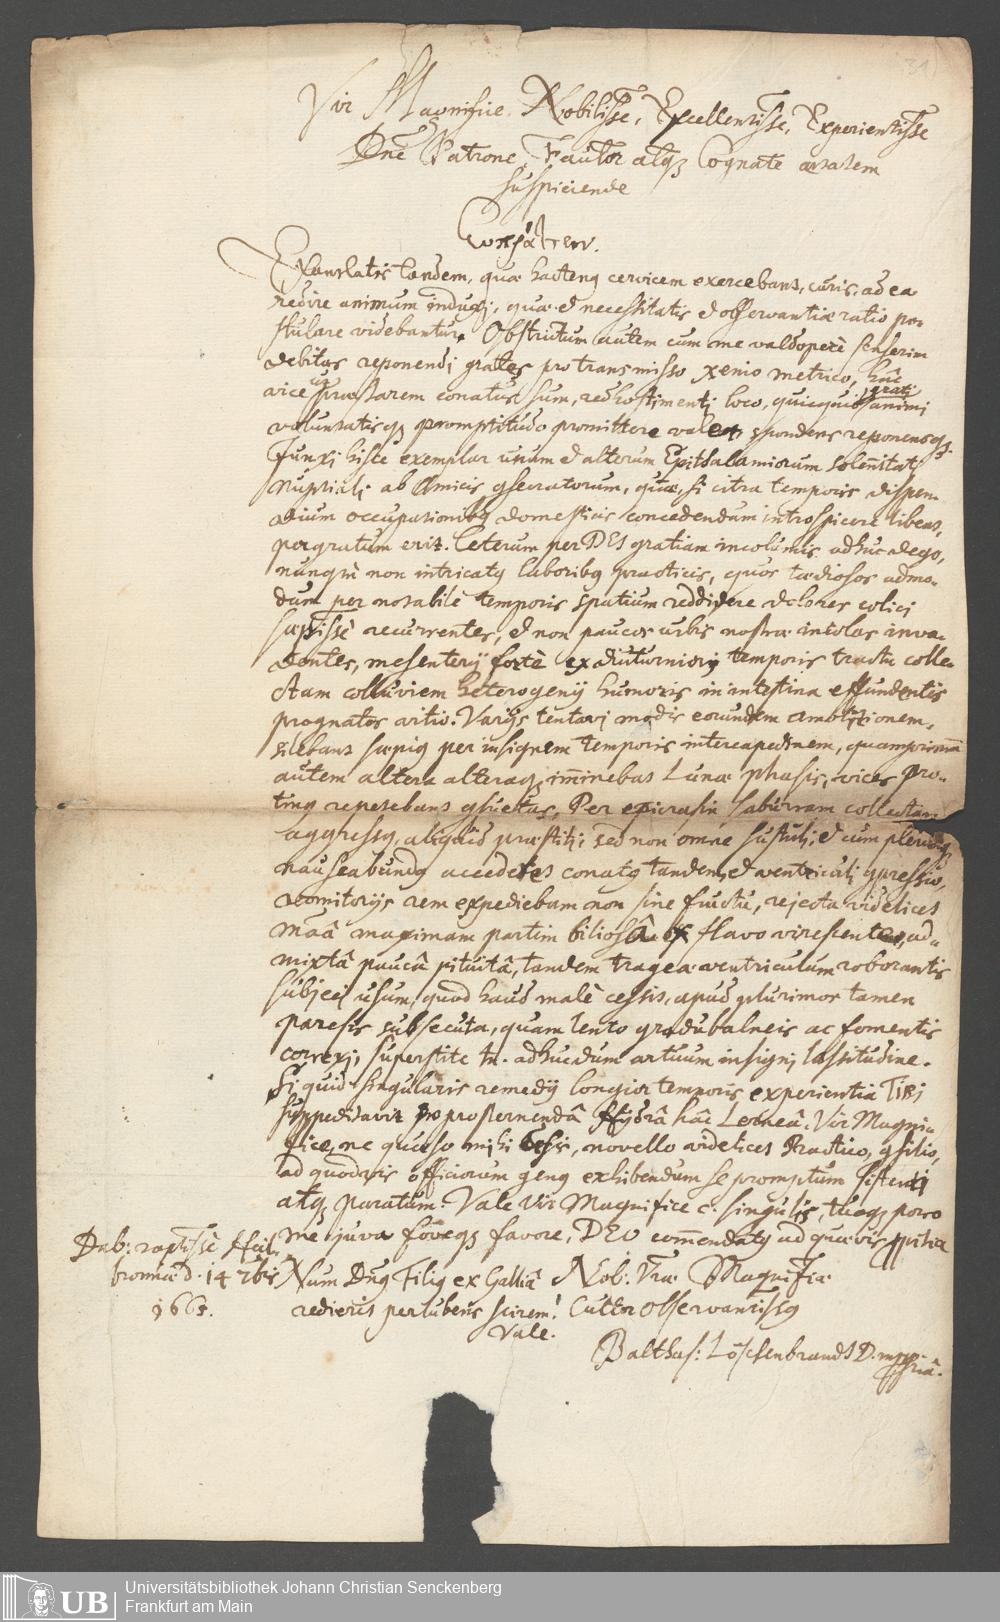 Vir Magnifice, Nobilisse, Excellentisse, Experientisse
Dne Patrone, Fautor atq Cognate ætatem
suspiciende
Exanclatis tandem, quæ hacteng cervicem exercebant, curis, ad ea
redire animum induxi, quæ et necessitatis et observantiæ ratio po-
stulare videbantur. Obstrictum autem cum me valdoperè senserim
debitas reponendi grates pro transmisso xenio metrico, hac
vice præstarem conatus sum, redhostimenti loco, quicquid grati animi
voluntatisq promptitudo promittere valet, spondens reponensq.
Junxi hisce exemplar unum et alterum Epithalamiorum solennitati
nuptiali ab Amicis gsecratorum, quæ, si citra temporis dispen-
dium occupationibq domesticis concedendum introspicere libeat,
pergratum erit. Ceterum per DEI gratiam incolumis adhuc dego,
nunqm non intricatq laboribq practicis, quos tædiosos admo-
dum per notabile temporis spatium reddidere dolores colici
sæpissè recurrentes, et non paucos urbis nostræ incolas inva-
dentes, mesenterij fortè ex diuturniorq temporis tractu colle-
ctam colluviem heterogenij humoris in intestina effundentis
prognatos vitio. Varijs tentavi modis eorundem amolitionem,
silebant sæpiq per insignem temporis intercapedinem, quamprimum
autem altera alteraq imminebat Lunæ phasis, vices pro-
tinq repetebant gsuetas, Per epicrasin saburram collectam
aggressq, aliquid præstiti; sed non omne sustuli, et cum plerisq
nauseabundq accedetet conatq tandem, et ventriculi gpressio,
vomitorijs rem expediebam non sine fructu, rejecta videlicet
maâ maximam partim biliosâ ex flavo virescente, ad-
mixtâ paucâ pituitâ, tandem trageæ ventriculum roborantis
subjeci usum, quod haud malè cessit, apud plurimos tamen
paresis subsecuta, quam lento gradu balneis ac fomentis
correxi, superstite tn. adhucdum artuum insigni lassitudine.
Si quid singularis remedij longior temporis experientia TIBI
suppeditavit pro prosternendâ Hydrâ hâc Lerneâ, Vir Magni-
fice, ne quæso mihi desis, novello videlicet Practico, gsilio,
ad quodvis officiorum genq exhibendum se promptum sistenti
atq paratum. Vale Vir Magnifice c. singulis, tuoq porro
me juva foveq favore, DEO commendatq ad quævis
Dab: raptissè Heil-
bronnæ d. 14 7bris
166
Num Dnq Filiq ex Galliâ
redierit perlubens scirem!
Vale.
Nob: Vræ Magnifiæ
Cultor observantissq
Balthas: Löschenbrandt D. mppriâ.
Universitätsbibliothek Johann Christian Senckenberg
Frankfurt am Main
UB